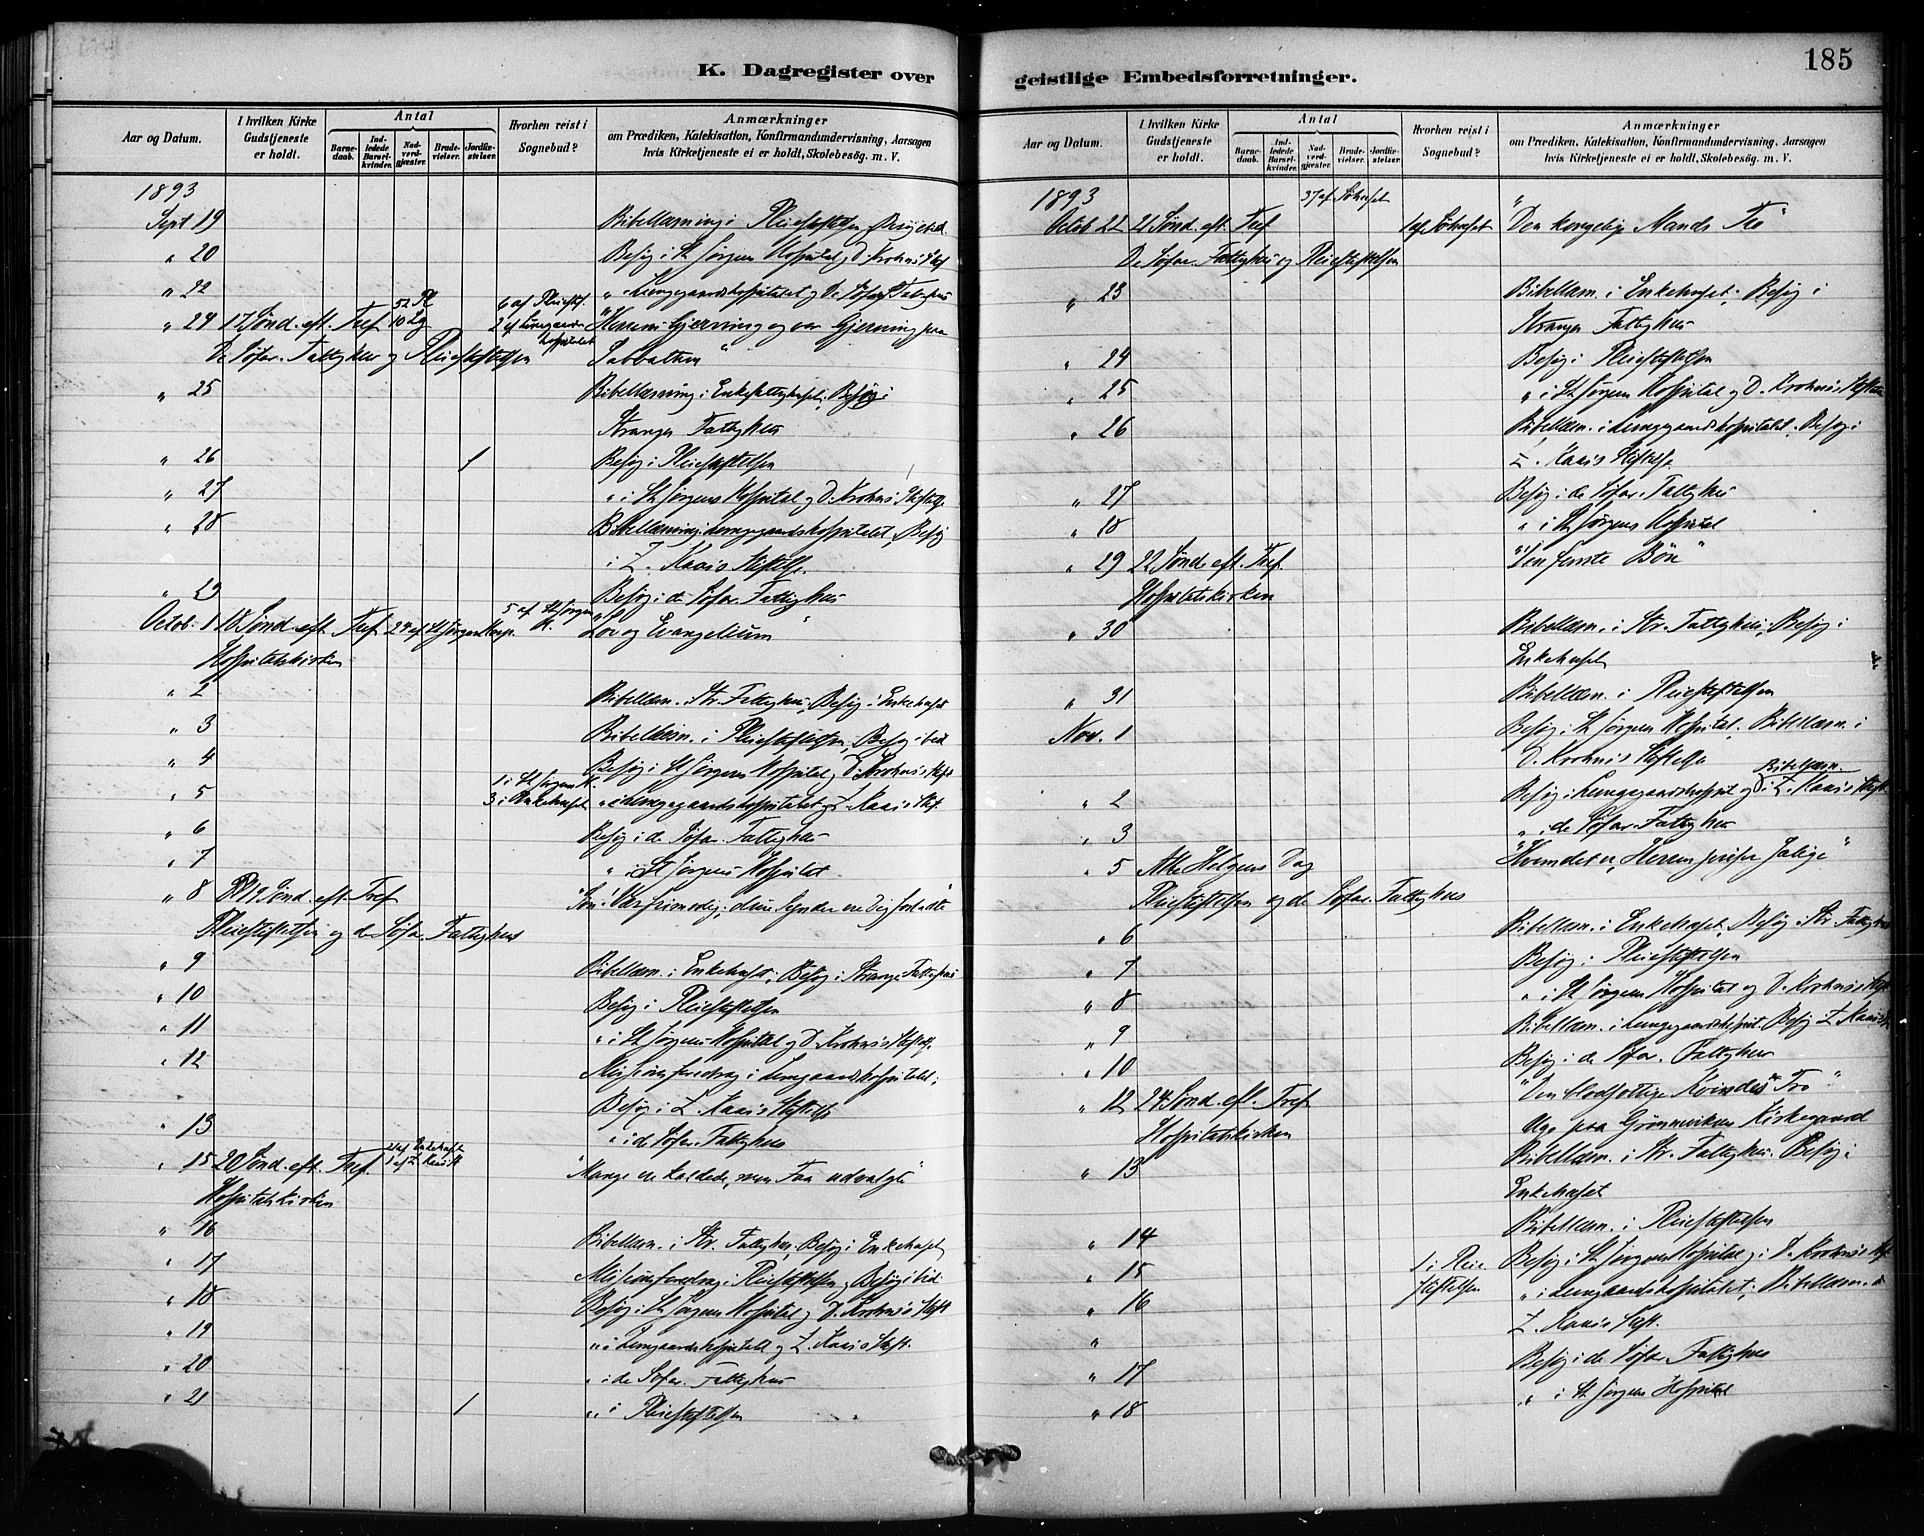 K. Dagregister over
Aar og Datum. I hvilken Kirke Gudstjeneste er holdt. Antal Barnedaab. Indledede Barselkvinder. Nadverdgjester. Brudevielser. Jordfæstelser. Hvorhen reist i Sognebud? Anmærkninger om Prædiken, Katekisation, Konfirmandundervisning, Aarsagen hvis Kirketjeneste ei er holdt, Skolebesög. m. V.
1893
Sept 19 Bibellæsning i Pleiestiftelsen
" 20 Besög i St Jørgens Hospital og D. Krohns Stift
" 22 " Lungegaardshospitalet og De Søfar. Fattighus
52 Pl 6 af Pleiestif.
" 24 17 Sönd. eft. Tref 10 Lg 2 af Lungegaards "Herrens Gjerning og vor Gjerning paa
De Søfar. Fattighus og Pleiestiftelsen hospitalet Sabbathen"
" 25 Bibellæsning i Enkefattighuset; Besøg i
Stranges Fattighus
" 26 1 Besøg i Pleiestiftelsen
" 27 " i St Jørgens Hospital og D. Krohns Stiftelse
" 28 Bibellæsning i Lungegaardshospitalet, Besøg
i Z. Kaaes Stiftelse
" 29 Besøg i de Søfar. Fattighus
Octob. 1 18 Sønd. eft. Tref 24 af St Jørgens Hosp. 5 af St Jørgens H. "Lov og Evangelium"
Hospitalskirken
" 2 Bibellæsn. Str. Fattighus, Besøg i Enkehuset
" 3 Bibellæsn. i Pleiestiftelsen, Besøg ibid
" 4 Besøg i St Jørgens Hospital og D. Krohns Stift
1 i St Jørgens H.
" 5 3 i Enkehuset " i Lungegaardshospitalet og Z. Kaaes Stift.
" 6 Besøg i de Søfar. Fattighus
" 7 " i St Jørgens Hospital
" 8 19 Sønd. eft. Tref "Søn! Vær frimodig; dine Synder ere Dig forladte"
Pleiestiftelsen og de Søfar. Fattighus
" 9 Bibellæsn. i Enkehuset; Besøg i Stranges Fattighus
" 10 Besøg i Pleiestiftelsen
" 11 " i St Jørgens Hospital og D. Krohns Stiftelse
" 12 Missionsforedrag i Lungegaardshospitalet;
Besøg i Z. Kaaes Stiftelse
" 13 " i de Søfar. Fattighus
" 15 20 Sønd. eft. Tref. 2 af Enkehuset 1 af Z. Kaaes St "Mange ere kaldede, men Faa udvalgte"
Hospitalskirken
" 16 Bibellæsn. i Str. Fattighus, Besøg i Enkehuset
" 17 Missionsforedrag i Pleiestiftelsen og Besøg ibid.
" 18 Besøg i St Jørgens Hospital og D. Krohns Stift
" 19 " i Lungegaardshospitalet og Z. Kaaes Stift.
" 20 " i de Søfar. Fattighus
" 21 1 " i Pleiestiftelsen
geistlige Embedsforretninger.
185
Aar og Datum. I hvilken Kirke Gudstjeneste er holdt. Antal Barnedaab. Indledede Barselkvinder. Nadverdgjester. Brudevielser. Jordfæstelser. Hvorhen reist i Sognebud? Anmærkninger om Prædiken, Katekisation, Konfirmandundervisning, Aarsagen hvis Kirketjeneste ei er holdt, Skolebesög. m. V.
1893
Octob 22 21 Sønd. eft. Tref "Den kongelige Mands Tro"
De Søfar. Fattighus og Pleiestiftelsen
" 23 Bibellæsn. i Enkehuset; Besøg i
Stranges Fattighus
" 24 Besøg i Pleiestiftelsen
" 25 " i St Jørgens Hospital og D. Krohns Stiftelse
" 26 Bibellæsn. i Lungegaardshospitalet. Besøg i
Z. Kaaes Stiftelse
" 27 Besøg i de Søfar. Fattighus
" 18 " i St Jørgens Hospital
" 29 22 Sønd. eft. Tref. "Den femte Bøn"
Hospitalskirken
" 30 Bibellæsn. i Str. Fattighus, Besøg i
Enkehuset
" 31 Bibellæsn. i Pleiestiftelsen
Nov. 1 Besøg i St Jørgens Hospital. Bibellæsn. i
D. Krohns Stiftelse
Bibellæsn.
" 2 Besøg i Lungegaardshospit og i Z. Kaaes Stift
" 3 " i de Søfar. Fattighus
" 5 Alle Helgens Dag "Hvem det er, Herren priser salige"
Pleiestiftelsen og de Søfar. Fattighus
" 6 Bibellæsn. i Enkehuset, Besøg i Str. Fattighus
" 7 Besøg i Pleiestiftelsen
" 8 " i St Jørgens Hospital og D. Krohns Stift
" 9 Bibellæsn. i Lungegaardshospit. Besøg Z. Kaaes St
" 10 Besøg i de Søfar. Fattighus
" 12 24 Sønd. eft. Tref "Den blodsottige Kvindes Tro"
Hospitalskirken Uge paa Grønnevikens Kirkegaard
" 13 Bibellæsn. i Str. Fattighus. Besøg i
Enkehuset
" 14 Bibellæsn. i Pleiestiftelsen
" 15 1 i Pleie- Besøg i St Jørgens Hospital og i D. Krohns Stift
" 16 stiftelsen " i Lungegaardshospitalet; Bibellæsn. i
" Z. Kaaes Stift.
" 17 Besøg i de Søfar. Fattighus
" 18 " i St Jørgens Hospital